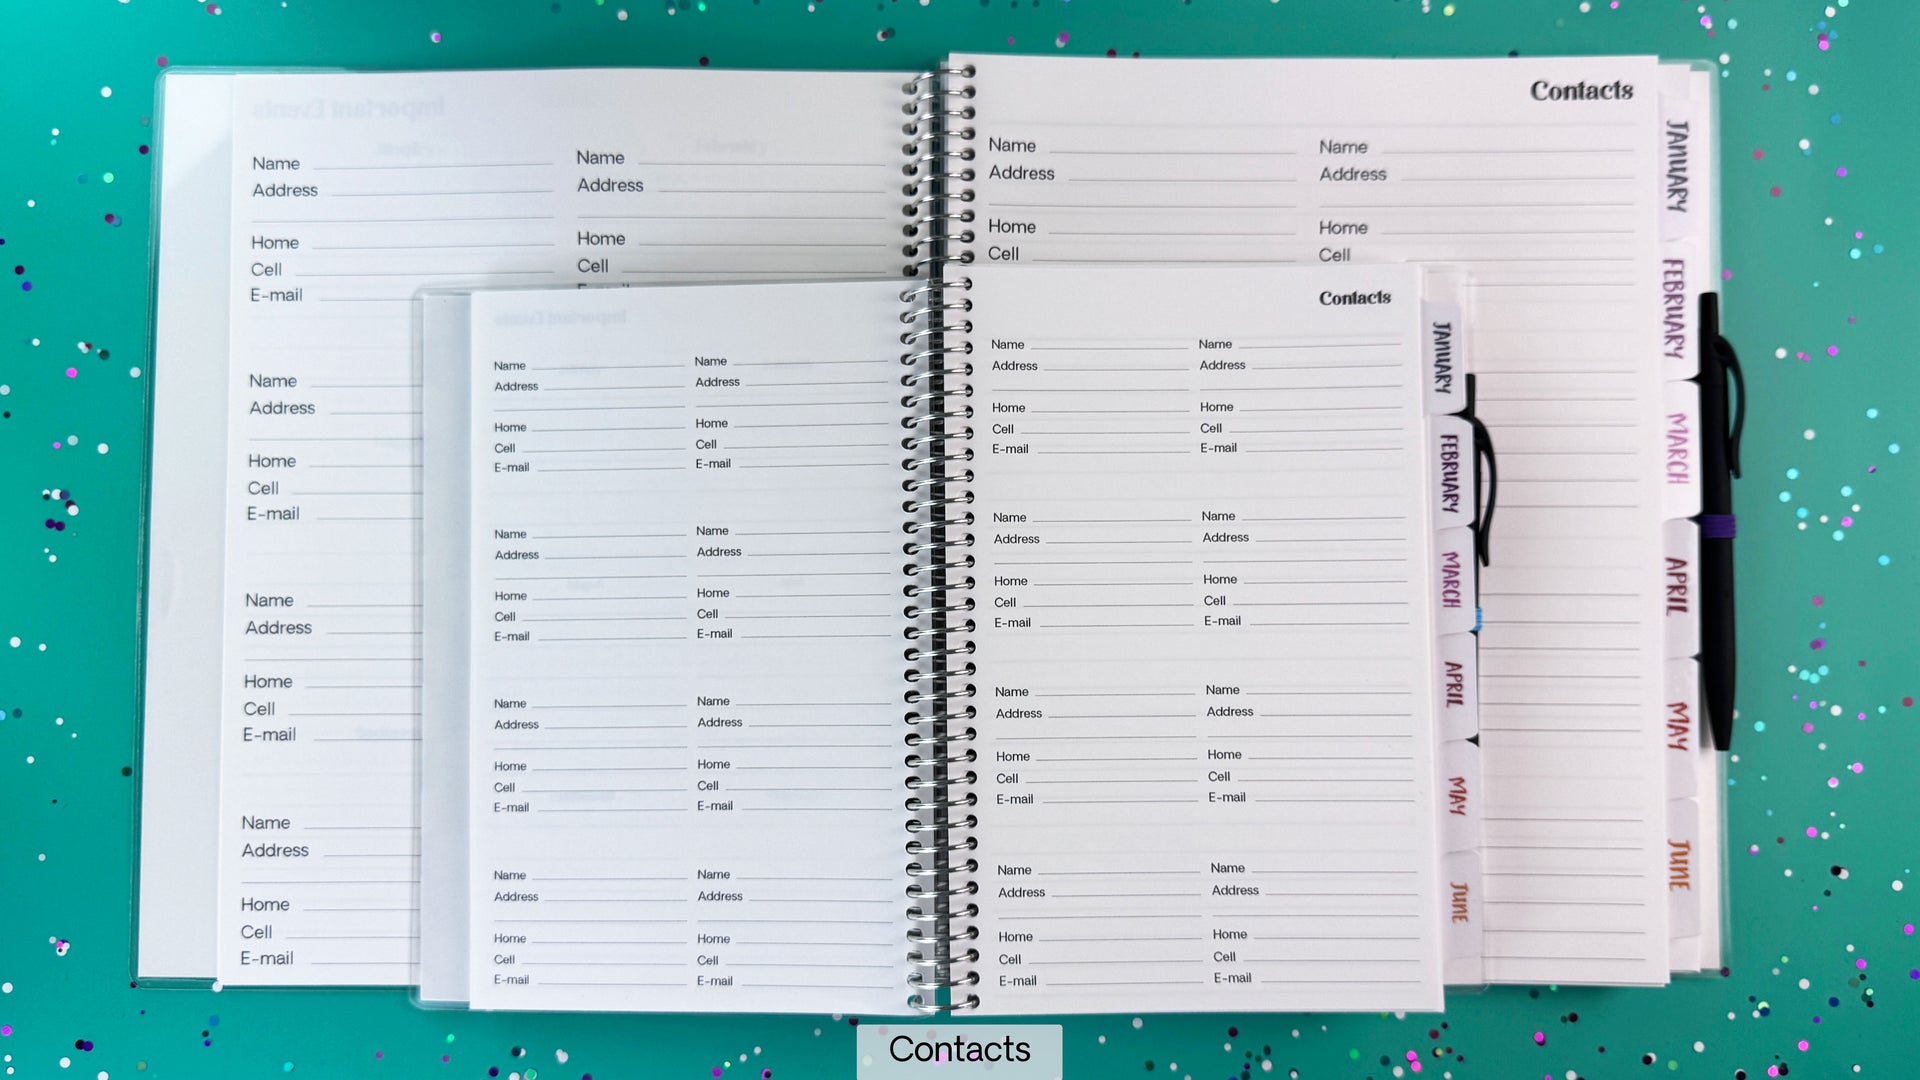 Contacts
Name Name
Address Address
Home Home
Cell Cell
E-mail
Name
Address
Home
Cell
E-mail
Name
Address
Home
Cell
E-mail
Name
Address
Home
Cell
E-mail
Name Name
Address Address
Home Home
Cell Cell
JANUARY
FEBRUARY
MARCH
APRIL
MAY
JUNE
Contacts
Name Name
Address Address
Home Home
Cell Cell
E-mail E-mail
Name Name
Address Address
Home Home
Cell Cell
E-mail E-mail
Name Name
Address Address
Home Home
Cell Cell
E-mail E-mail
Name Name
Address Address
Home Home
Cell Cell
E-mail E-mail
Name Name
Address Address
Home Home
Cell Cell
E-mail E-mail
Name Name
Address Address
Home Home
Cell Cell
E-mail E-mail
Name Name
Address Address
Home Home
Cell Cell
E-mail E-mail
Name Name
Address Address
Home Home
Cell Cell
E-mail E-mail
JANUARY
FEBRUARY
MARCH
APRIL
MAY
JUNE
Contacts